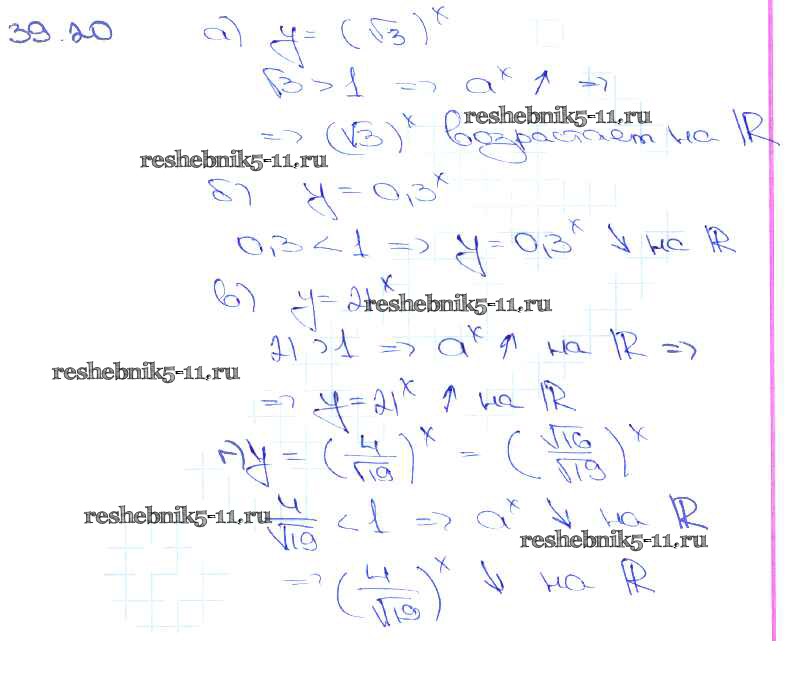 39.20 а) y = (√3)^x
√3 > 1 => a^x ↑ =>
reshebnik5-11.ru
=> (√3)^x возрастает на ℝ
reshebnik5-11.ru
б) y = 0,3^x
0,3 < 1 => y = 0,3^x ↓ на ℝ
в) y = 21^x
reshebnik5-11.ru
21 > 1 => a^x ↑ на ℝ =>
reshebnik5-11.ru
=> y = 21^x ↑ на ℝ
г) y = (4/√19)^x = (√16/√19)^x
reshebnik5-11.ru
4/√19 < 1 => a^x ↓ на ℝ
reshebnik5-11.ru
=> (4/√19)^x ↓ на ℝ